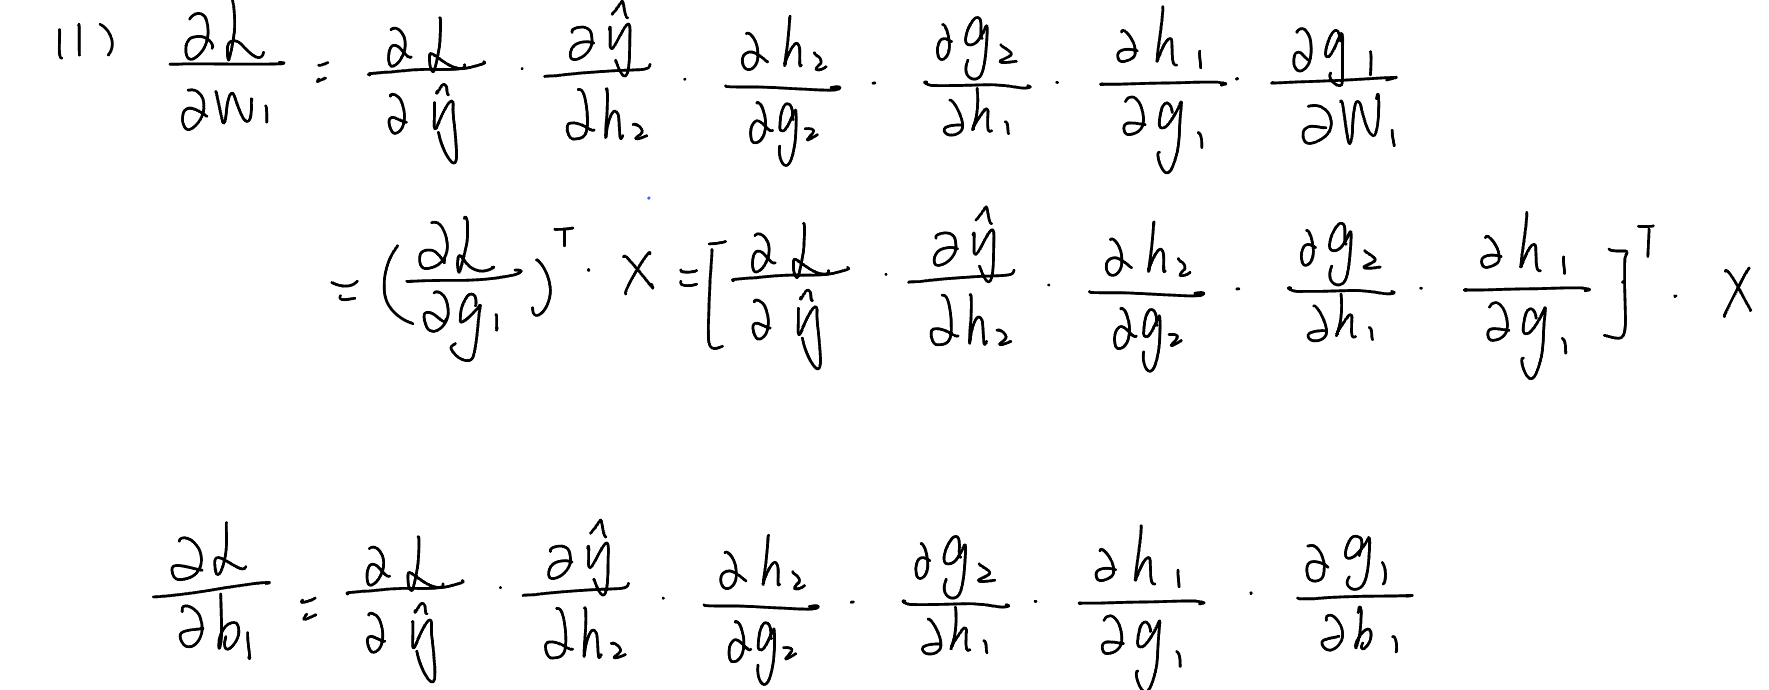 11) ∂L/∂W₁ = ∂L/∂ŷ · ∂ŷ/∂h₂ · ∂h₂/∂g₂ · ∂g₂/∂h₁ · ∂h₁/∂g₁ · ∂g₁/∂W₁
= (∂L/∂g₁)ᵀ · X = [∂L/∂ŷ · ∂ŷ/∂h₂ · ∂h₂/∂g₂ · ∂g₂/∂h₁ · ∂h₁/∂g₁]ᵀ · X
∂L/∂b₁ = ∂L/∂ŷ · ∂ŷ/∂h₂ · ∂h₂/∂g₂ · ∂g₂/∂h₁ · ∂h₁/∂g₁ · ∂g₁/∂b₁